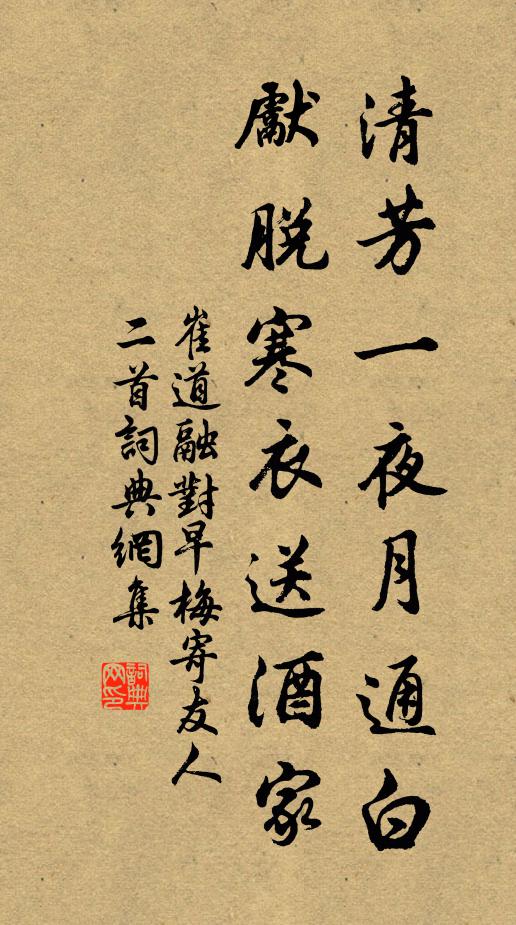 清芳一夜月通白
獻脫寒衣送酒家
崔道融對早梅寄友人
二首詞典網集
詞典網印